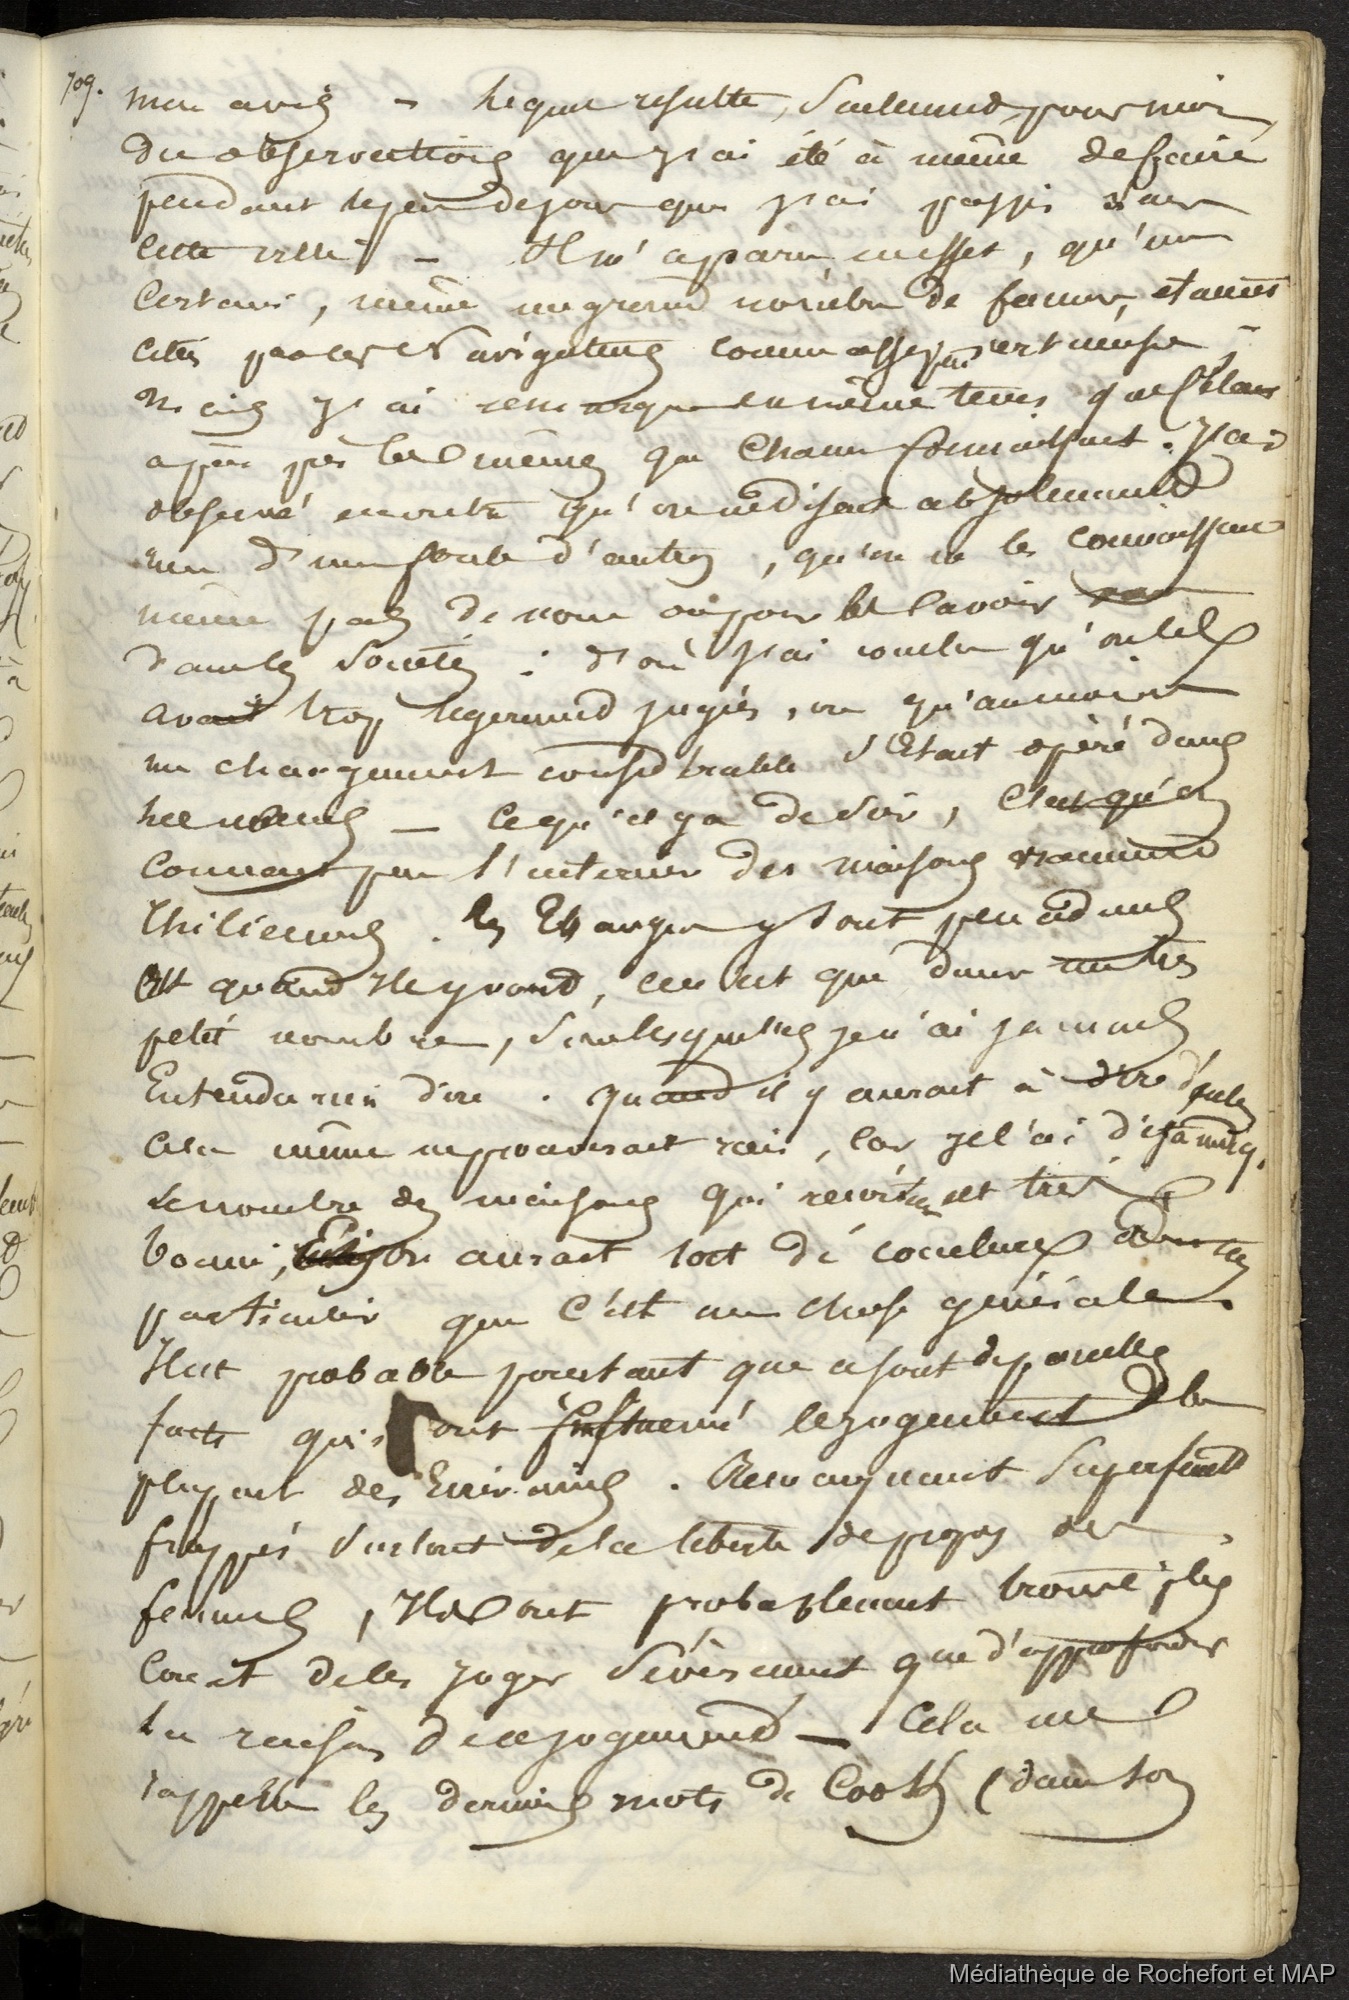 709.
mon avis - Ce qui resulte, Seulement pour moi
des observations que j'ai été à même de faire
pendant le peu de jours que j'ai passés dans
cette ville - Il m'a paru en effet, qu'un
Certain, même un grand nombre de femmes, étaient
citées par les Navigateurs comme assez peu vertueuses -
Mais j'ai remarqué en même tems que c'étaient
à peu près les mêmes que chacun connaissait. J'ai
observé en outre qu'on ne disait absolument
rien d'une foule d'autres, qu'on ne les connaissait
même pas de nom ou pour les avoir vues
dans les Sociétés : d'où j'ai conclu qu'on les
avait trop legerement jugées, ou qu'au moins
un changement considerable s'était opéré dans
les moeurs - Ce qu'il y a de sûr, C'est qu'on
Connait peu l'interieur des maisons vraiment
Chiliennes. les Etrangers y sont peu admis
Et quand Ils y vont, ce n'est que dans un très
petit nombre, sur lesquelles je n'ai jamais
Entendu rien dire. quand il y aurait à dire d'elles
cela même ne prouverait rien, Car je l'ai dejà
le nombre des maisons qui reçoivent est très
borné, on aurait tort de conclure du
particulier que c'est une chose générale.
Il est probable pourtant que ce sont de pareils
faits qui ont influencé le jugement de la
plupart des Ecrivains. Remarquant Superficiellement
frappés surtout de la liberté de propos des
femmes, Ils ont probablement trouvé plus
court de les juger Sévèrement que d'approfondir
la raison de ce jugement - Cela me
rappelle les derniers mots de Cook (dans son
Médiathèque de Rochefort et MAP